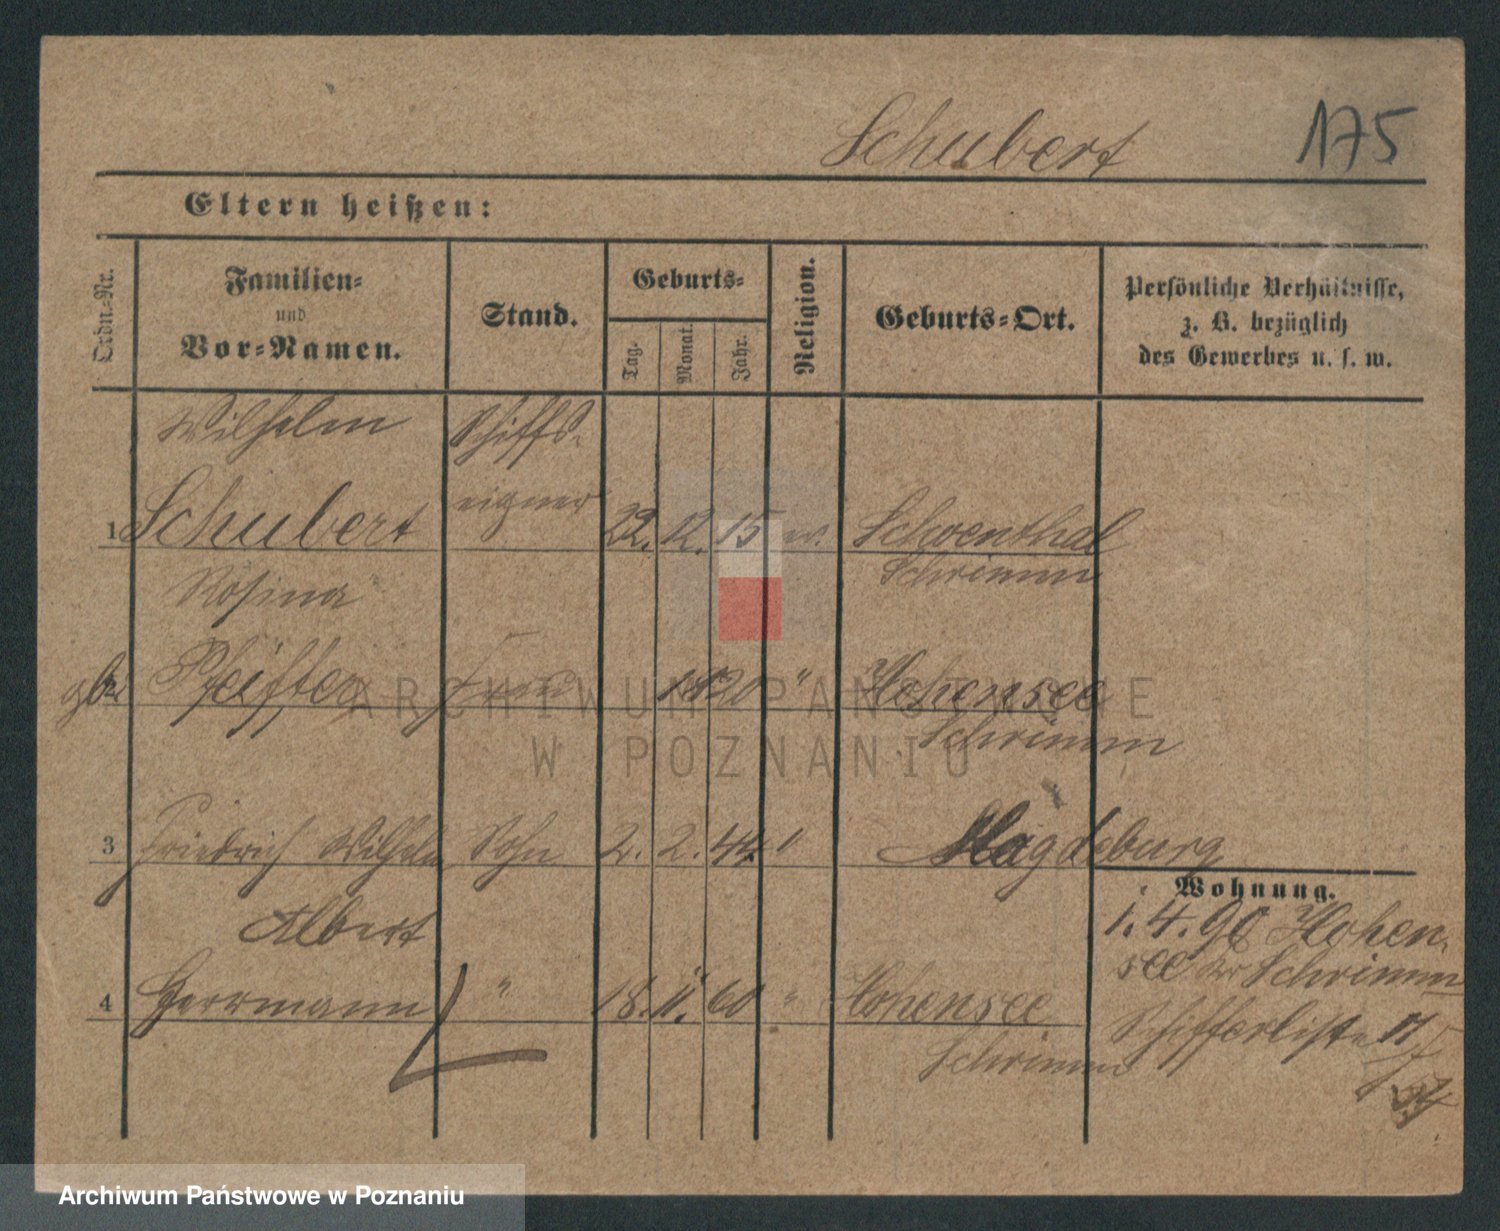 Schubert 175
Eltern heißen:
Ordn.-Nr.
Familien-
und
Vor-Namen.
Stand.
Geburts-
Tag.
Monat.
Jahr.
Religion.
Geburts-Ort.
Persönliche Verhältnisse,
z. B. bezüglich
des Gewerbes u. s. w.
Wilhelm Schiffs-
eigner
1 Schubert 22. 12. 15 ev. Schwenthal
Schrimm
Rosina
geb. 2 Pfeiffer Frau 20 " Hohensee
Schrimm
3 Friedrich Wilhelm Sohn 2. 2. 44 " Magdeburg
Albert
4 Herrmann " 18. 11. 60 " Hohensee
Schrimm
Wohnung.
1. 4. 90 Hohen-
see Kr Schrimm
Schifferliste
ARCHIWUM PAŃSTWOWE
W POZNANIU
Archiwum Państwowe w Poznaniu